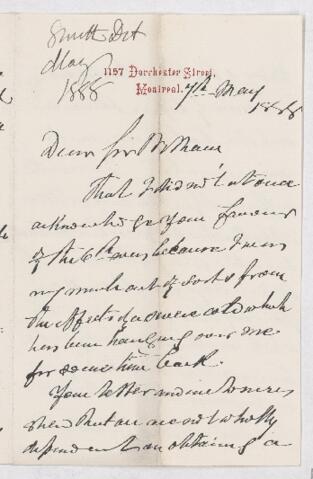 Smith Dt
May
1888
1157 Dorchester Street,
Montreal. 7th May
1888
Dear Sir William
That I did not at once
acknowledge your favour
of the 6th was because I was
very much out of sorts from
the effects of a severe cold which
has been hanging over me
for some time back.
Your letter
that are not wholly
dependent on obtaining a